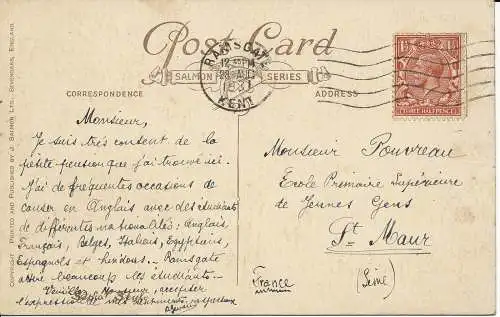 Post Card
SALMON SERIES
CORRESPONDENCE
ADDRESS
RAMSGATE
12 PM
28 AUG
1931
KENT
THREE HALFPENCE
COPYRIGHT PRINTED AND PUBLISHED BY J. SALMON LTD., SEVENOAKS, ENGLAND.
Monsieur,
Je suis très content de la
petite pension que j'ai trouvée ici.
J'ai de fréquentes occasions de
causer en Anglais avec des étudiants
de différentes nationalités: Anglais,
Français, Belges, Italiens, Egyptiens,
Espagnols et hindous. Ramsgate
attire beaucoup les étudiants.
Veuillez Monsieur, accepter
l'expression de mes sentiments respectueux
Monsieur Pouvreau
Ecole Primaire Supérieure
de Jeunes Gens
St Maur
(Seine)
France